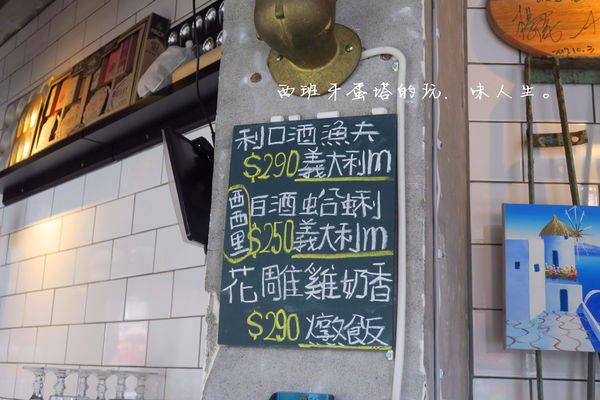 西班牙蛋塔的玩．味人生。
利口酒漁夫
$290義大利m
西西里
白酒蛤蜊
$250義大利m
花雕雞奶香
$290燉飯